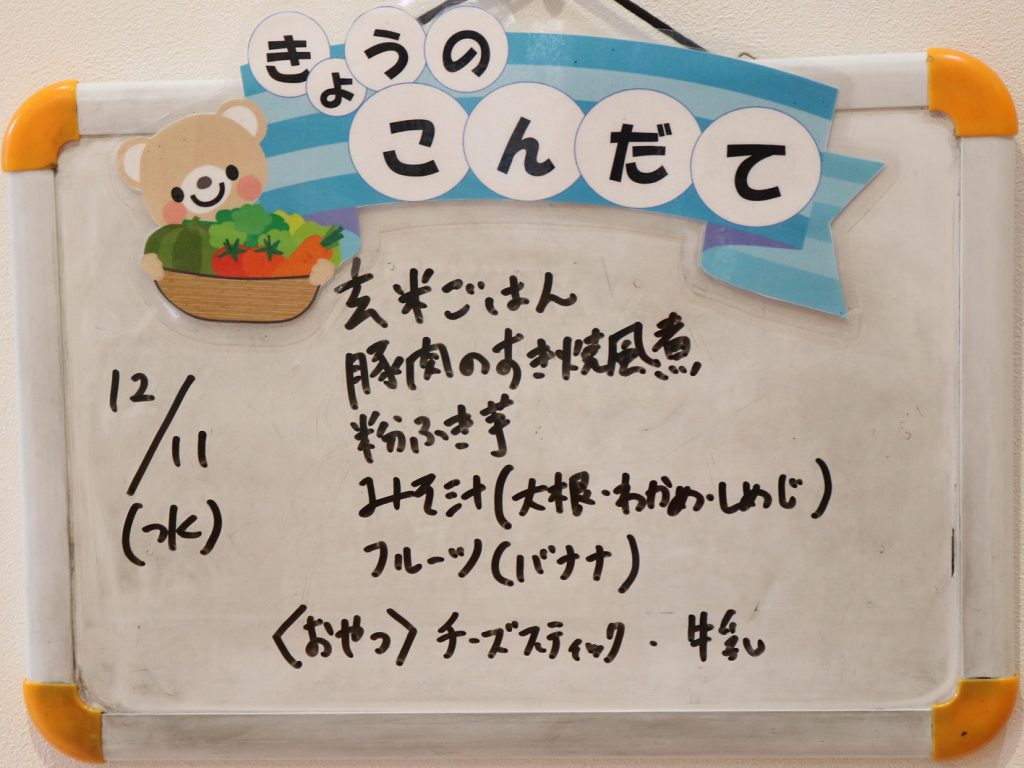 きょうの
こんだて
12/11
(水)
玄米ごはん
豚肉のすき焼風煮
粉ふき芋
みそ汁(大根・わかめ・しめじ)
フルーツ(バナナ)
〈おやつ〉チーズスティック・牛乳